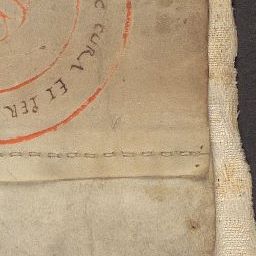 C CURA EI PER